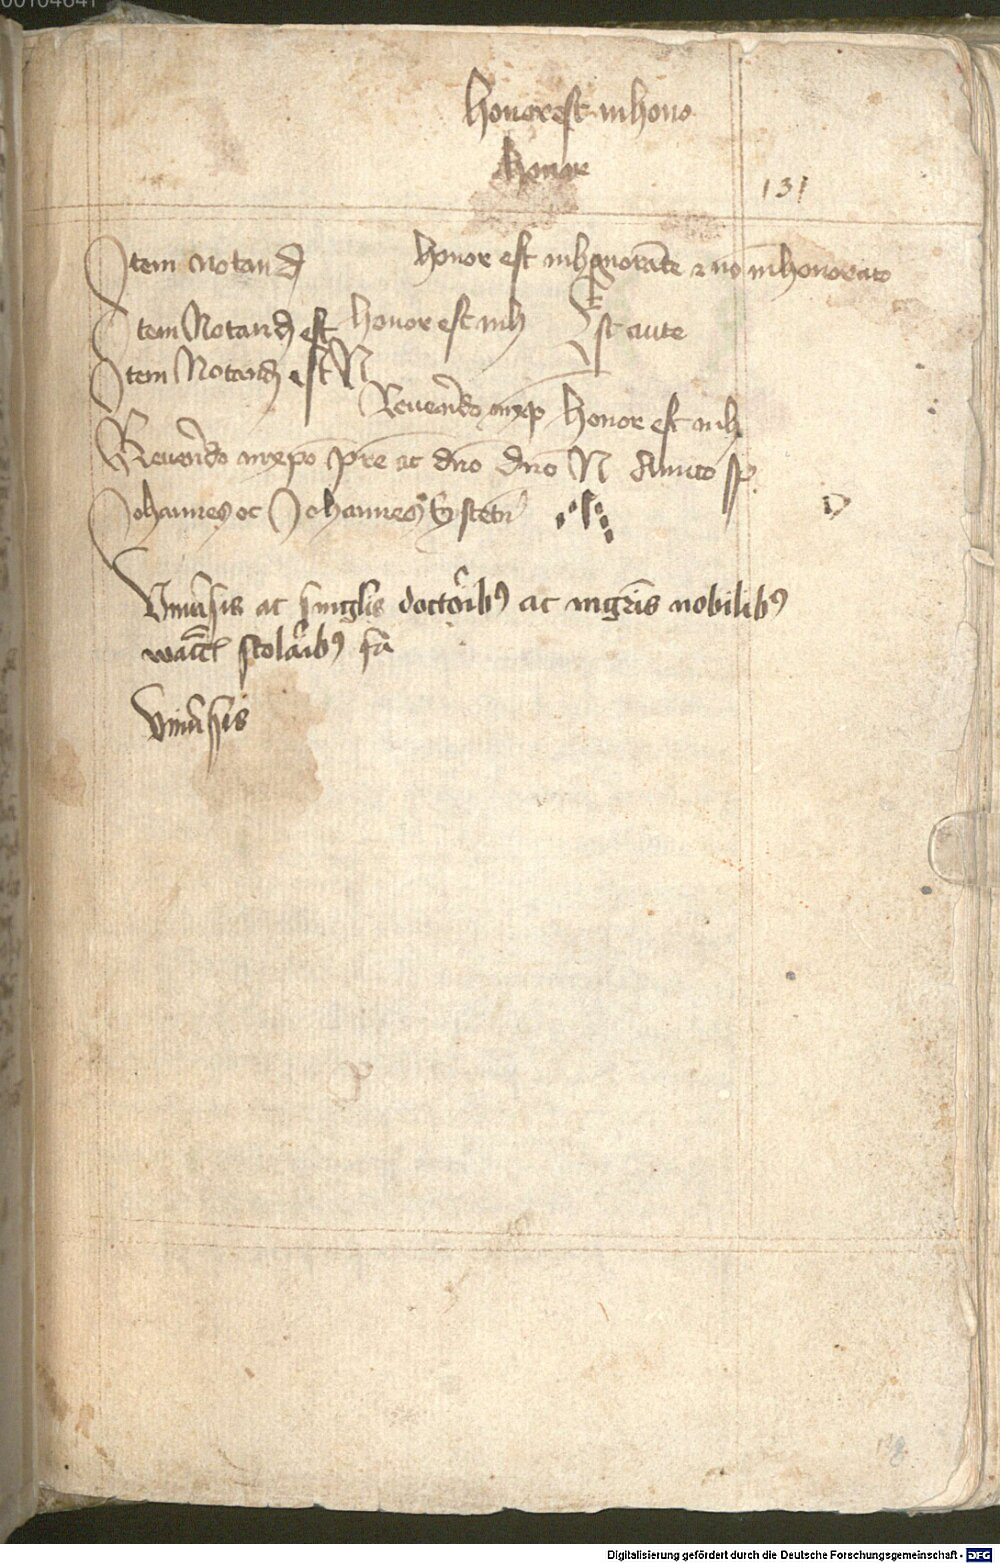 honor est in hono
honor
131
Item notand
honor est inhonorãte ⁊ nõ inhonorato
Item Notand est honor est inh
Est aute
Item Notand est N
Reuerẽdo inxp honor est inh
Reuerẽdo inxpõ pr̃e ac dño dño N Amico
Johannes oc Johannes
Vniũsis ac singl̃is doctõribꝰ ac mgr̃is nobilibꝰ
scolãribꝰ
Vniũsis
Digitalisierung gefördert durch die Deutsche Forschungsgemeinschaft - DFG